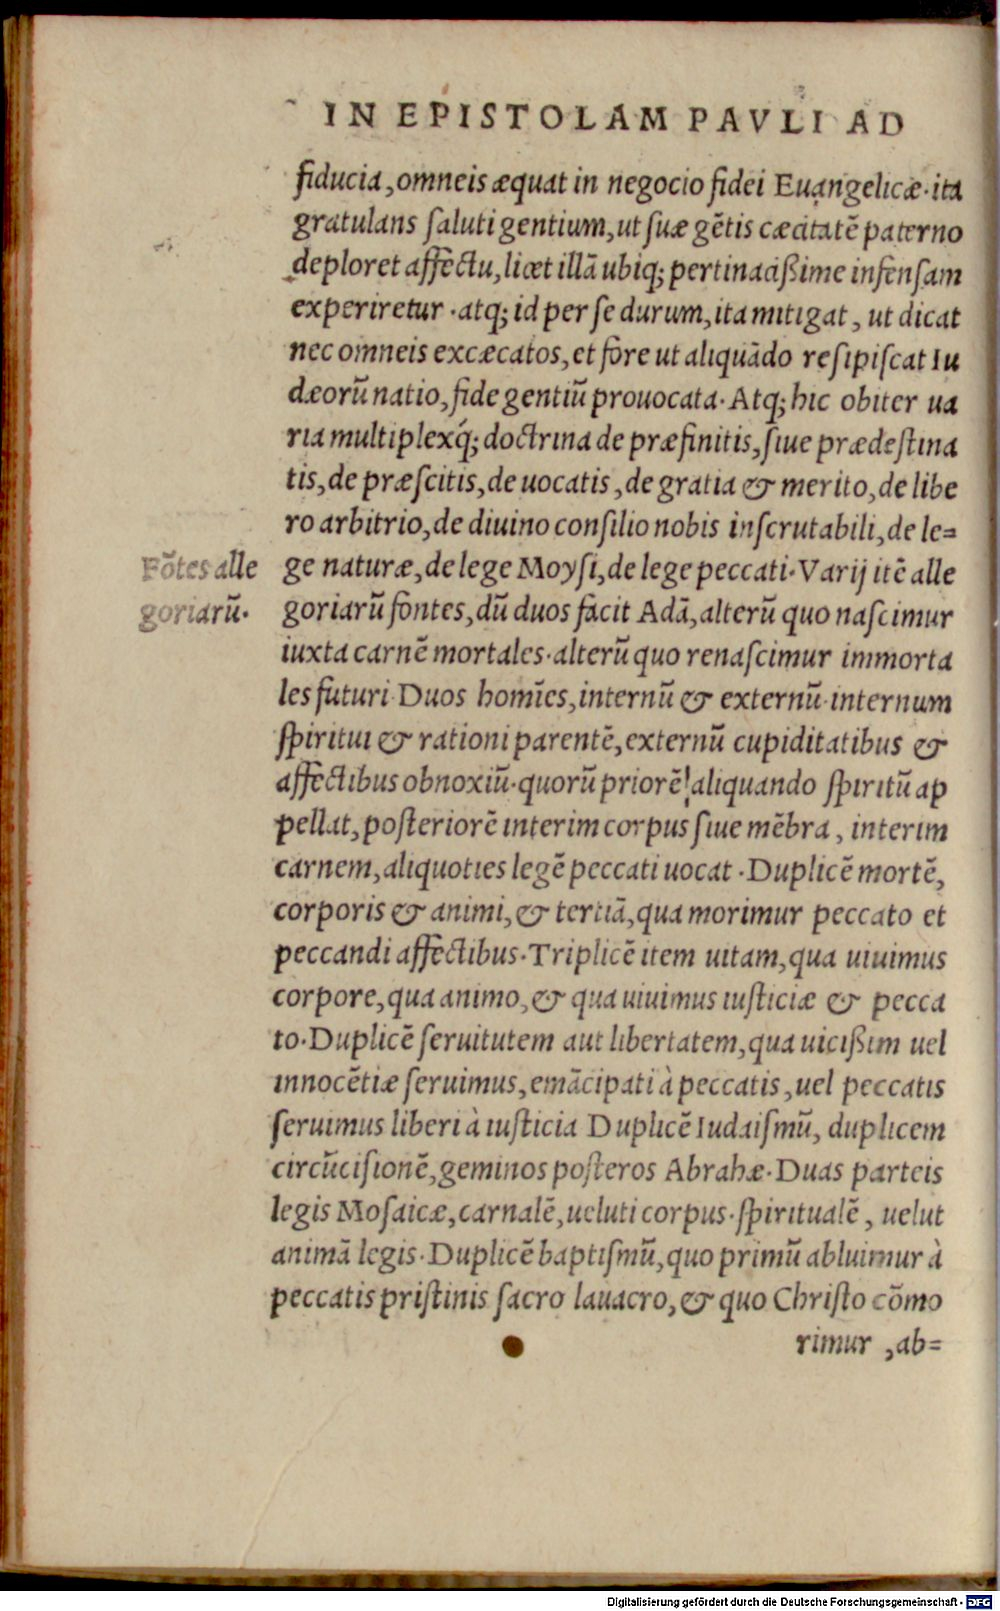 IN EPISTOLAM PAVLI AD
fiducia, omneis æquat in negocio fidei Euangelicæ. ita
gratulans saluti gentium, ut suæ gẽtis cæcitatẽ paterno
deploret affectu, licet illã ubiq; pertinacißime infensam
experiretur. atq; id per se durum, ita mitigat, ut dicat
nec omneis excæcatos, et fore ut aliquãdo resipiscat Iu
dæorũ natio, fide gentiũ prouocata. Atq; hic obiter ua
ria multiplexq́; doctrina de præfinitis, siue prædestina
tis, de præscitis, de uocatis, de gratia & merito, de libe
ro arbitrio, de diuino consilio nobis inscrutabili, de le=
Fõtes alle
goriarũ.
ge naturæ, de lege Moysi, de lege peccati. Varij itẽ alle
goriarũ fontes, dũ duos facit Adã, alterũ quo nascimur
iuxta carnẽ mortales. alterũ quo renascimur immorta
les futuri. Duos homĩes, internũ & externũ. internum
spiritui & rationi parentẽ, externũ cupiditatibus &
affectibus obnoxiũ. quorũ priorẽ aliquando spiritũ ap
pellat, posteriorẽ interim corpus siue mẽbra, interim
carnem, aliquoties legẽ peccati uocat. Duplicẽ mortẽ,
corporis & animi, & tertiã, qua morimur peccato et
peccandi affectibus. Triplicẽ item uitam, qua uiuimus
corpore, qua animo, & qua uiuimus iusticiæ & pecca
to. Duplicẽ seruitutem aut libertatem, qua uicißim uel
innocẽtiæ seruimus, emãcipati à peccatis, uel peccatis
seruimus liberi à iusticia Duplicẽ Iudaismũ, duplicem
circũcisionẽ, geminos posteros Abrahæ. Duas parteis
legis Mosaicæ, carnalẽ, ueluti corpus. spiritualẽ, uelut
animã legis. Duplicẽ baptismũ, quo primũ abluimur à
peccatis pristinis sacro lauacro, & quo Christo cõmo
rimur, ab=
Digitalisierung gefördert durch die Deutsche Forschungsgemeinschaft - DFG